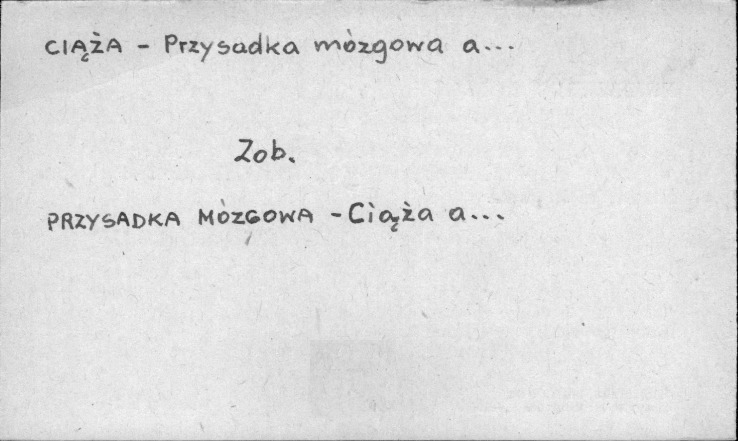 CIĄŻA - Przysadka mózgowa a...
Zob.
PRZYSADKA MÓZGOWA - Ciąża a...